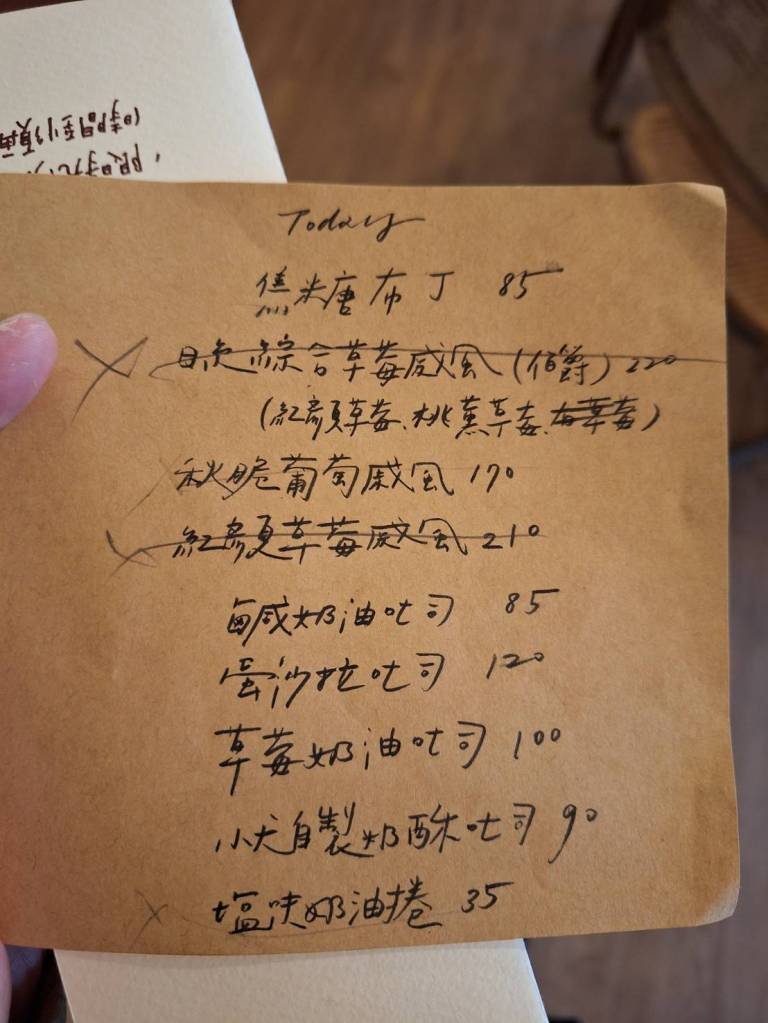 (時間到須再
，限時九
Today
焦糖布丁 85
綜合草莓戚風(伯爵) 220
(紅顏草莓、桃薰草莓、草莓)
秋脆葡萄戚風 170
紅顏草莓戚風 210
鹹奶油吐司 85
蛋沙拉吐司 120
草莓奶油吐司 100
小犬自製奶酥吐司 90
塩味奶油捲 35